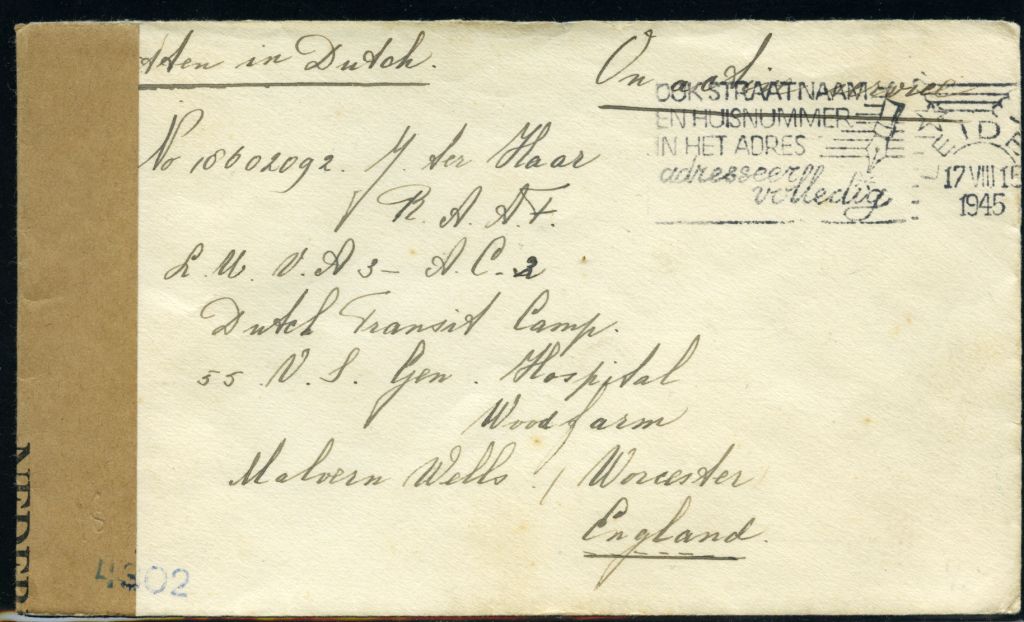 tten in Dutch.
On active service
OOK STRAATNAAM
EN HUISNUMMER
IN HET ADRES
adresseer
volledig
LEIDEN
17 VIII 15
1945
No 18602092. J. ter Haar
R. A. A. F.
L. U. V. A 3 - A. C. 2
Dutch Transit Camp.
55 U. S. Gen. Hospital
Woodfarm
Malvern Wells / Worcester
England.
NEDER
4302